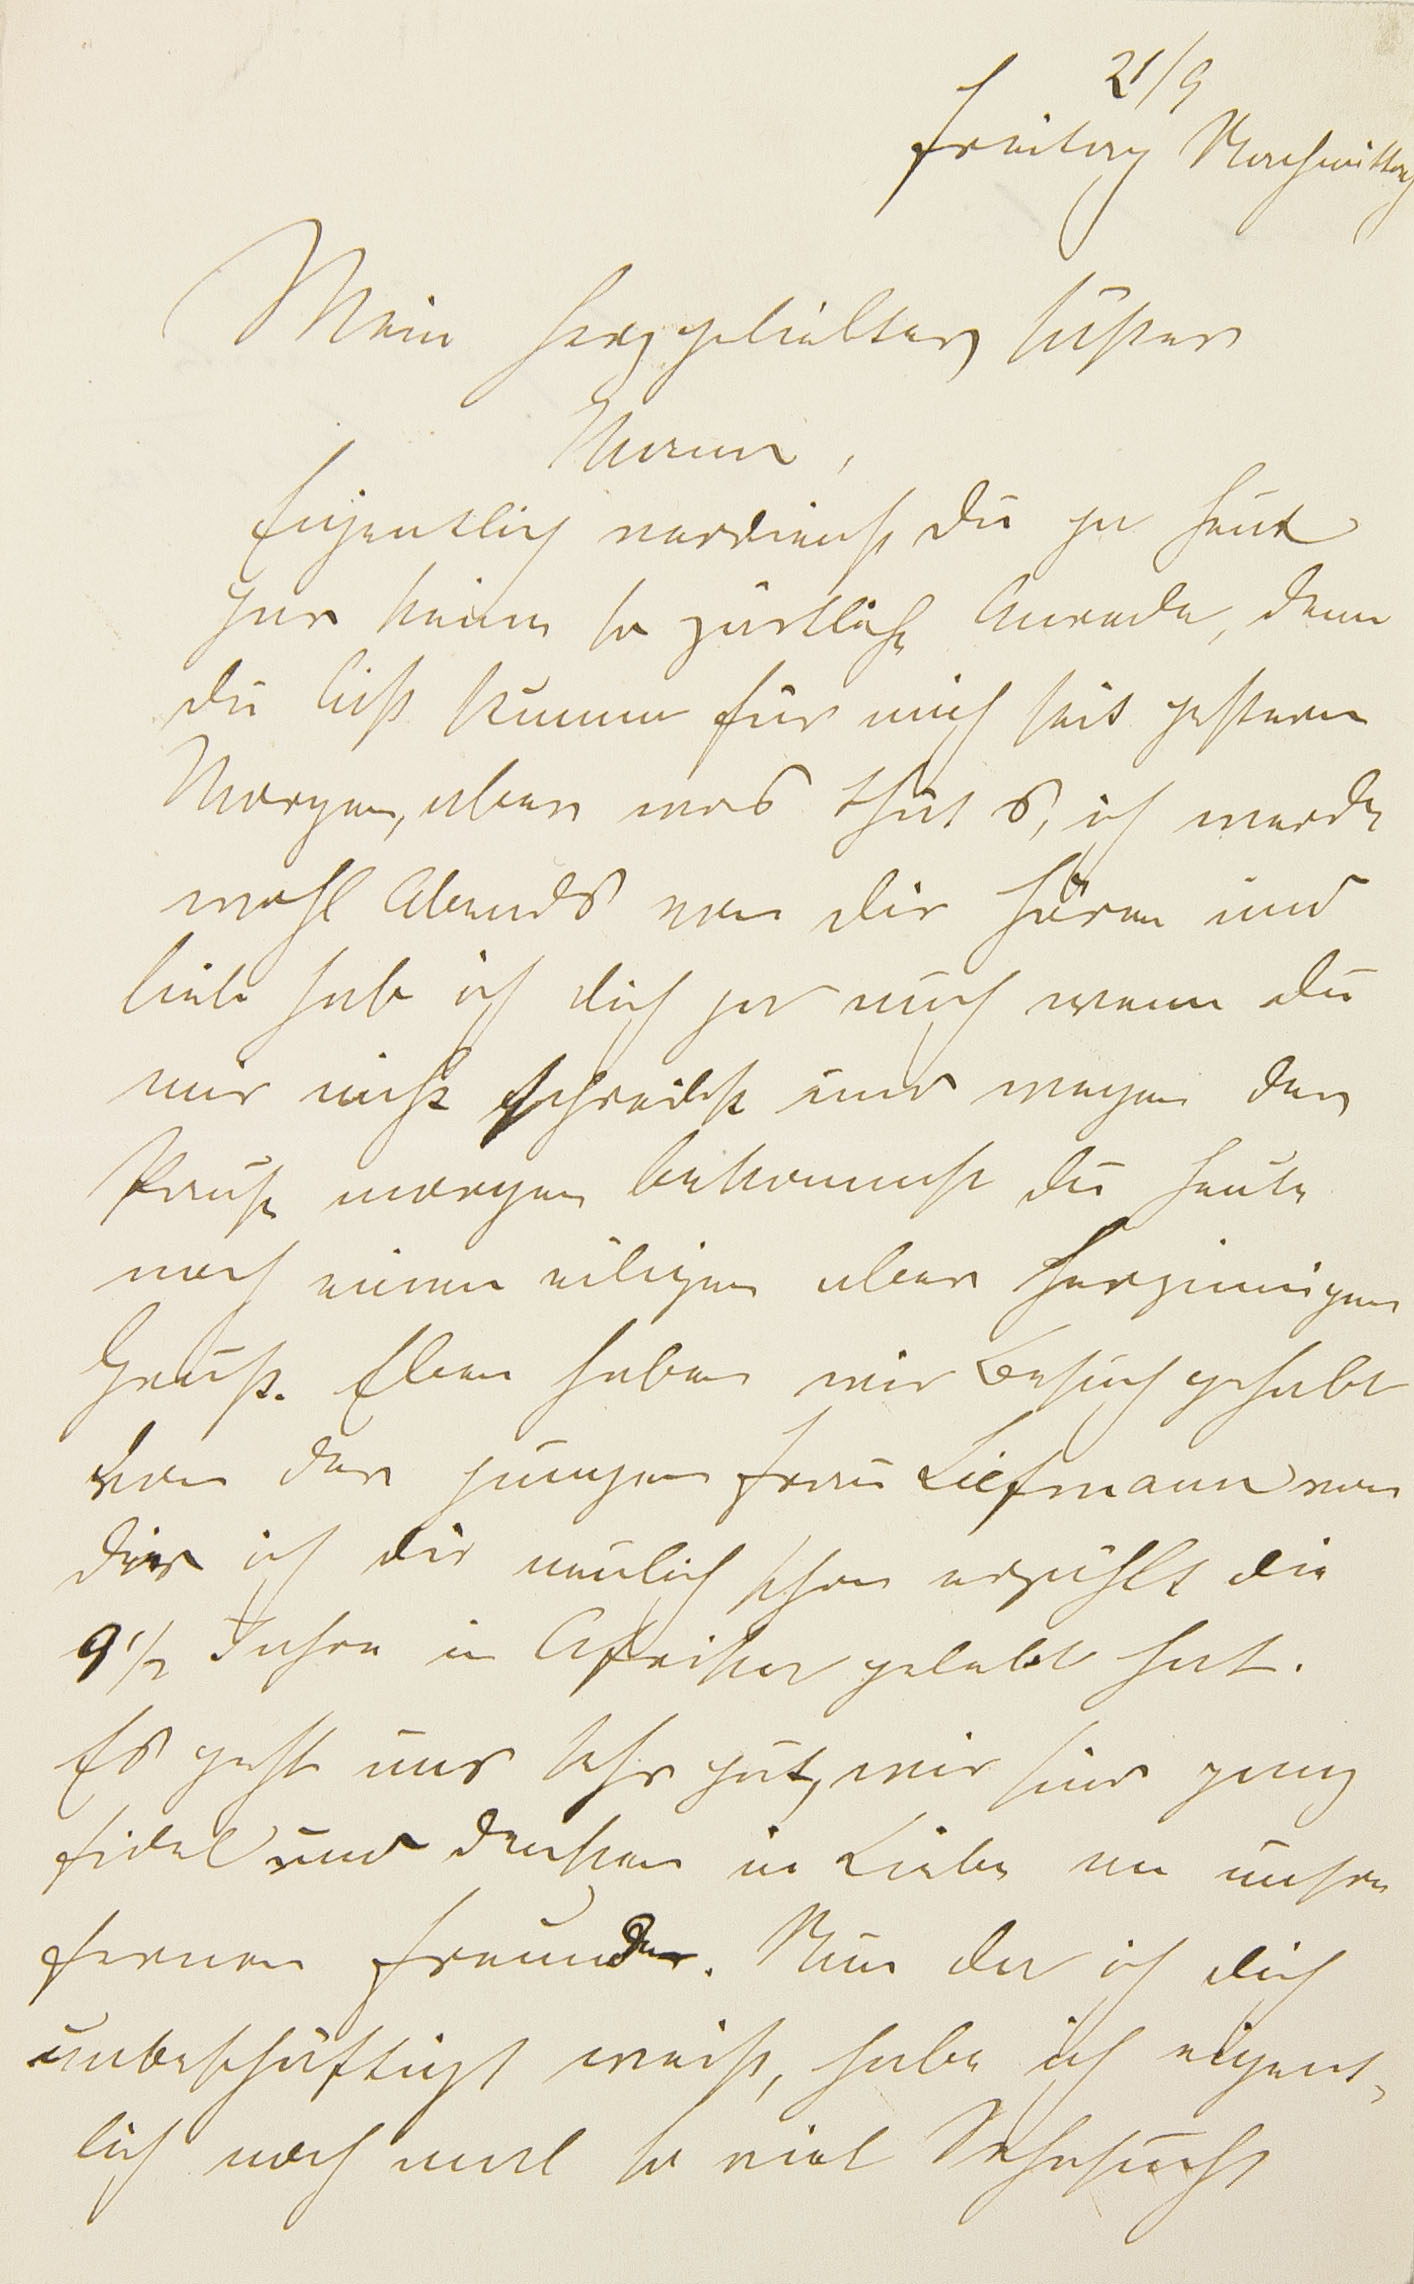 21/9
Freitag Nachmittag
Mein herzgeliebter süßer
Mann,
Eigentlich verdienst du ja heut
gar keine so zärtliche Anrede, denn
du bist stumm für mich seit gestern
Morgen, aber was thut s, ich werde
wohl Abends von dir hören und
liebe hab ich dich ja auch wenn du
mir nicht schreibst und wegen der
Pause morgen bekommst du heute
noch einen eiligen aber herzinnigen
Gruß. Eben haben wir Besuch gehabt
von der jungen Frau Liefmann von
der ich dir neulich schon erzählt die
9 1/2 Jahre in Afrika gelebt hat.
Es geht uns sehr gut, wir sind ganz
fidel und denken in Liebe an unsre
fernen Freunde. Nun da ich dich
unbeschäftigt weiß, habe ich eigent-
lich noch mal so viel Sehnsucht